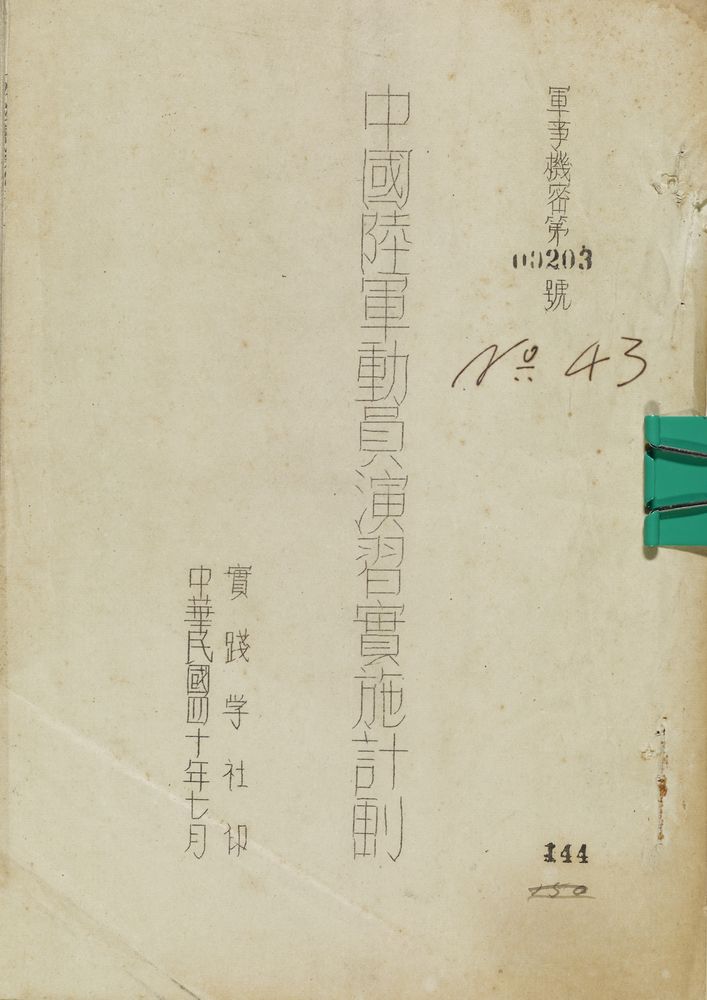 軍事機密第
00203
號
No 43
中國陸軍動員演習實施計劃
實踐学社印
中華民國四十年七月
144
150